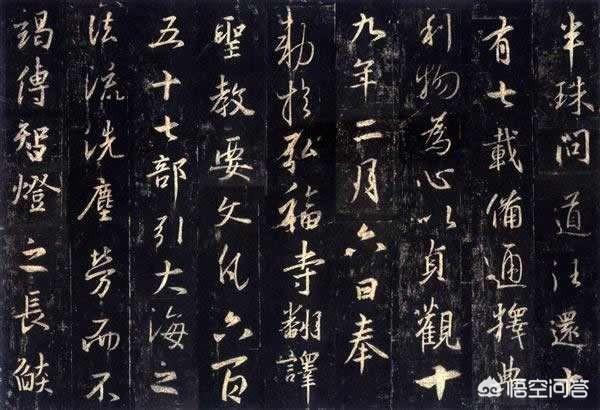 半珠問道往還十
有七載備通釋典
利物為心以貞觀十
九年二月六日奉
勅於弘福寺翻譯
聖教要文凡六百
五十七部引大海之
法流洗塵勞而不
竭傳智燈之長燄
悟空问答